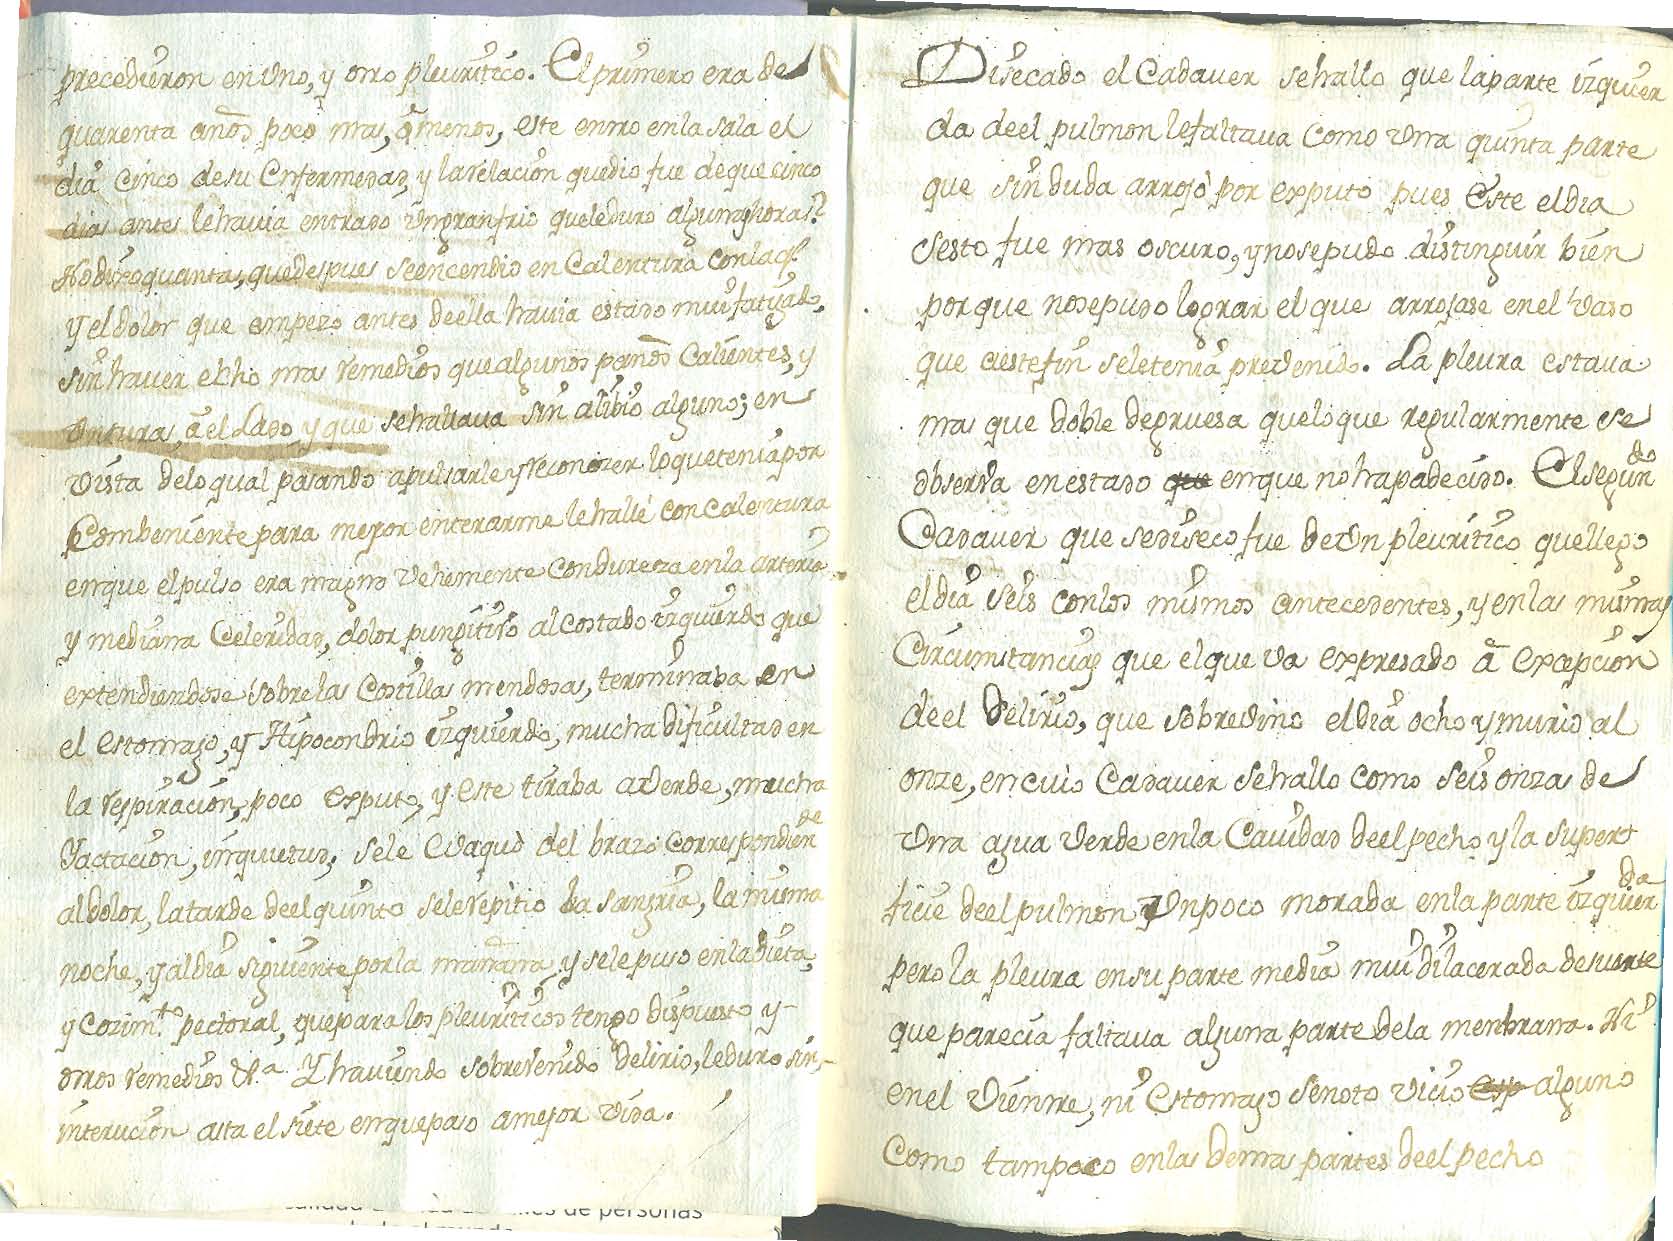 precedieron en Vno, y otro pleuritico. El primero era de
quarenta años poco mas, ô menos, este entro en la sala el
dia cinco de su Enfermedad, y la relacion que dio fue de que cinco
dias antes le havia entrado Vn gran frio que le duro algunas horas
No dixo quantas, que despues se encendio en Calentura con la ql.
y el dolor que empezo antes de ella havia estado mui fatigado,
sin haver echo mas remedios que algunos paños Calientes, y
Vnturas, â el Lado y que se hallava sin alibio alguno; en
Vista de lo qual pasando a pulsarle y reconozer lo que tenia por
Combeniente para mejor enterarme le hallé con Calentura
en que el pulso era magno Vehemente con dureza en la arteria
y mediana Celeridad, dolor pungitiVo al Costado izquierdo que
extendiendose sobre las Costillas mendosas, terminaba en
el estomago, y Hipocondrio izquierdo, mucha dificultad en
la respiracion, poco exputo, y este tiraba a Verde, mucha
Yactacion, inquietud, se le eVaquò del brazo Correspondien
de
al dolor, la tarde de el quinto se le repitio la sangria, la misma
noche, y al dia siguiente por la mañana y se le puso en la dieta,
y Cozimto. pectoral, que para los pleuriticos tengo dispuesto y
otros remedios &.a Y haviendo sobrevenido delirio, le duro sin
intermicion asta el siete en que paso a mejor Vida.
Disecado el Cadaver se hallo que la parte izquier
da de el pulmon le faltava como Vna quinta parte
que sin duda arrojò por exputo pues Este el dia
sesto fue mas oscuro, y no se pudo distinguir bien
por que no se pudo lograr el que arrojase en el Vaso
que a este fin se le tenia preVenido. La pleura estava
mas que doble de gruesa que lo que regularmente se
obserVa en estado que en que no ha padecido. El segun
do
Cadaver que se diseco fue de Vn pleuritico que llego
el dia seis con los mismos antecedentes, y en las mismas
Circumstancias que el que va expresado â excepcion
de el delirio, que sobreVino el dia ocho y murio al
onze, en cuio Cadaver se hallo como seis onzas de
Vna agua Verde en la Cauidad de el pecho y la super
ficie de el pulmon Vn poco morada en la parte izquier
da
pero la pleura en su parte media mui dilacerada de suerte
que parecia faltava alguna parte de la menbrana. Ni
en el Vientre, ni estomago se noto Vicio esp alguno
Como tampoco en las demas partes de el pecho